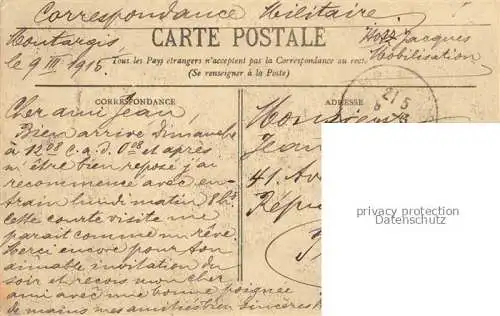 Correspondance Militaire
Montargis
le 9 III 1915
CARTE POSTALE
Jacques
Mobilisation
Tous les Pays étrangers n'acceptent pas la Correspondance au recto
(Se renseigner à la Poste)
CORRESPONDANCE
ADRESSE
21 5
Cher ami Jean,
Bien arrivé Dimanche
à 12 08 c.a.d. 0 08 et après
m'être bien reposé j'ai
recommencé avec en-
train lundi matin 8 h
Cette courte visite me
parait comme un rêve
Merci encore pour ton
aimable invitation du
soir et reçois mon cher
ami avec une bonne poignée
de mains mes amitiés bien sincères
Monsieur
Jean
41 Av
Répu
privacy protection
Datenschutz